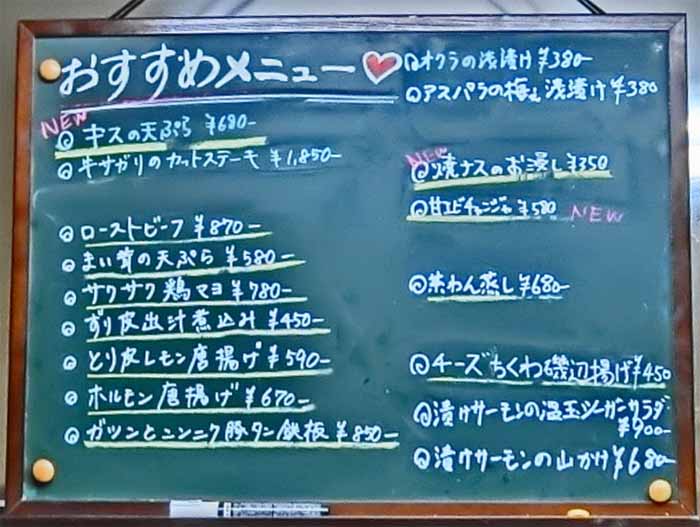 おすすめメニュー
NEW
◎キスの天ぷら ¥680-
◎牛サガリのカットステーキ ¥1,850-
◎ローストビーフ ¥870-
◎まい茸の天ぷら ¥580-
◎サクサク鶏マヨ ¥780-
◎ずり皮出汁煮込み ¥450-
◎とり皮レモン唐揚げ ¥590-
◎ホルモン唐揚げ ¥670-
◎ガツンとニンニク豚タン鉄板 ¥850-
◎オクラの浅漬け ¥380-
◎アスパラの梅 浅漬け ¥380
NEW
◎焼ナスのお浸し ¥350
◎甘エビチャンジャ ¥580 NEW
◎茶わん蒸し ¥680-
◎チーズちくわ磯辺揚げ ¥450
◎漬けサーモンの温玉シーザーサラダ
¥900-
◎漬けサーモンの山かけ ¥680-